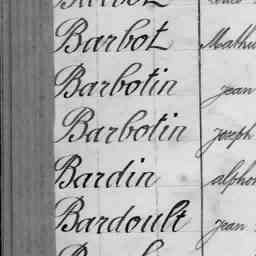 Barbot
Barbotin Jean
Barbotin Joseph
Bardin
Bardoult Jean